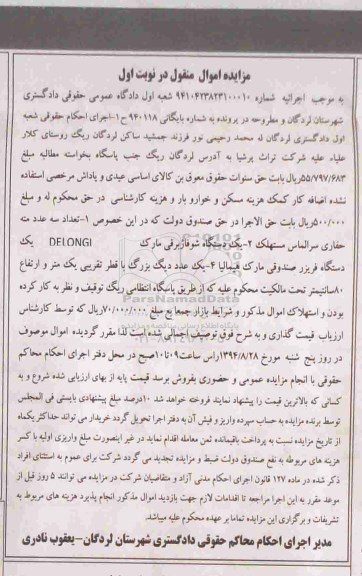 مزایده اموال منقول در نوبت اول
به موجب اجرائیه شماره ۹۴۱۰۴۲۳۸۲۳۱۰۰۰۱۰ شعبه اول دادگاه عمومی حقوقی دادگستری
شهرستان لردگان و مطروحه در پرونده به شماره بایگانی ۹۴۰۱۱۸ ح ۱-اجرای احکام حقوقی شعبه
اول دادگستری لردگان له محمد رحیمی نور فرزند جمشید ساکن لردگان ریگ روستای کلار
علیاء علیه شرکت تراث پرشیا به آدرس لردگان ریگ جنب پاسگاه بخواسته مطالبه مبلغ
۵۵/۷۹۷/۶۸۳ریال بابت حق سنوات حقوق معوق بن کالای اساسی عیدی و پاداش مرخصی استفاده
نشده اضافه کار کمک هزینه مسکن و خواربار و هزینه کارشناسی در حق محکوم له و مبلغ
۵۰۰/۰۰۰ریال بابت حق الاجرا در حق صندوق دولت که در این خصوص ۱-تعداد سه عدد مته
حفاری سرالماس مستهلک ۲-یک دستگاه شوفاژبرقی مارک DELONGI یک
دستگاه فریزر صندوقی مارک فیمالیا ۴-یک عدد دیگ بزرگ با قطر تقریبی یک متر و ارتفاع
۸۰سانتیمتر تحت مالکیت محکوم علیه که از طریق پاسگاه انتظامی ریگ توقیف و نظر به کار کرده
بودن و استهلاک اموال مذکور و شرایط بازار جمعا به مبلغ ۷۰/۰۰۰/۰۰۰ریال که توسط کارشناس
ارزیاب قیمت گذاری و به شرح فوق توصیف اجمالی شده است لذا مقرر گردیده اموال موصوف
در روز پنج شنبه مورخ ۱۳۹۴/۸/۲۸راس ساعت۰۹تا۱۰صبح در محل دفتر اجرای احکام محاکم
حقوقی با انجام مزایده عمومی و حضوری بفروش برسد قیمت پایه از بهای ارزیابی شده شروع و به
کسانی که بالاترین قیمت را پیشنهاد نمایند فروخته خواهد شد ۱۰درصد مبلغ پیشنهادی بایستی فی المجلس
توسط برنده مزایده به حساب سپرده واریز و فیش آن به دفتر اجرا تحویل گردد خریدار می تواند حداکثر یکماه
از تاریخ مزایده نسبت به پرداخت باقیمانده ثمن معامله اقدام نماید در غیر اینصورت مبلغ واریزی اولیه با کسر
هزینه های مربوطه به نفع صندوق دولت ضبط و مزایده تجدید می گردد شرکت برای عموم به استثنای افراد
ذکر شده در ماده ۱۲۷ قانون اجرای احکام مدنی آزاد و متقاضیان شرکت در مزایده می توانند ۵ روز قبل از
موعد مقرر به این اجرا مراجعه تا اقدامات لازم جهت بازدید اموال مذکور انجام پذیرد هزینه های مربوط به
تشریفات و برگزاری این مزایده تماما بر عهده محکوم علیه میباشد.
مدیر اجرای احکام محاکم حقوقی دادگستری شهرستان لردگان-یعقوب نادری